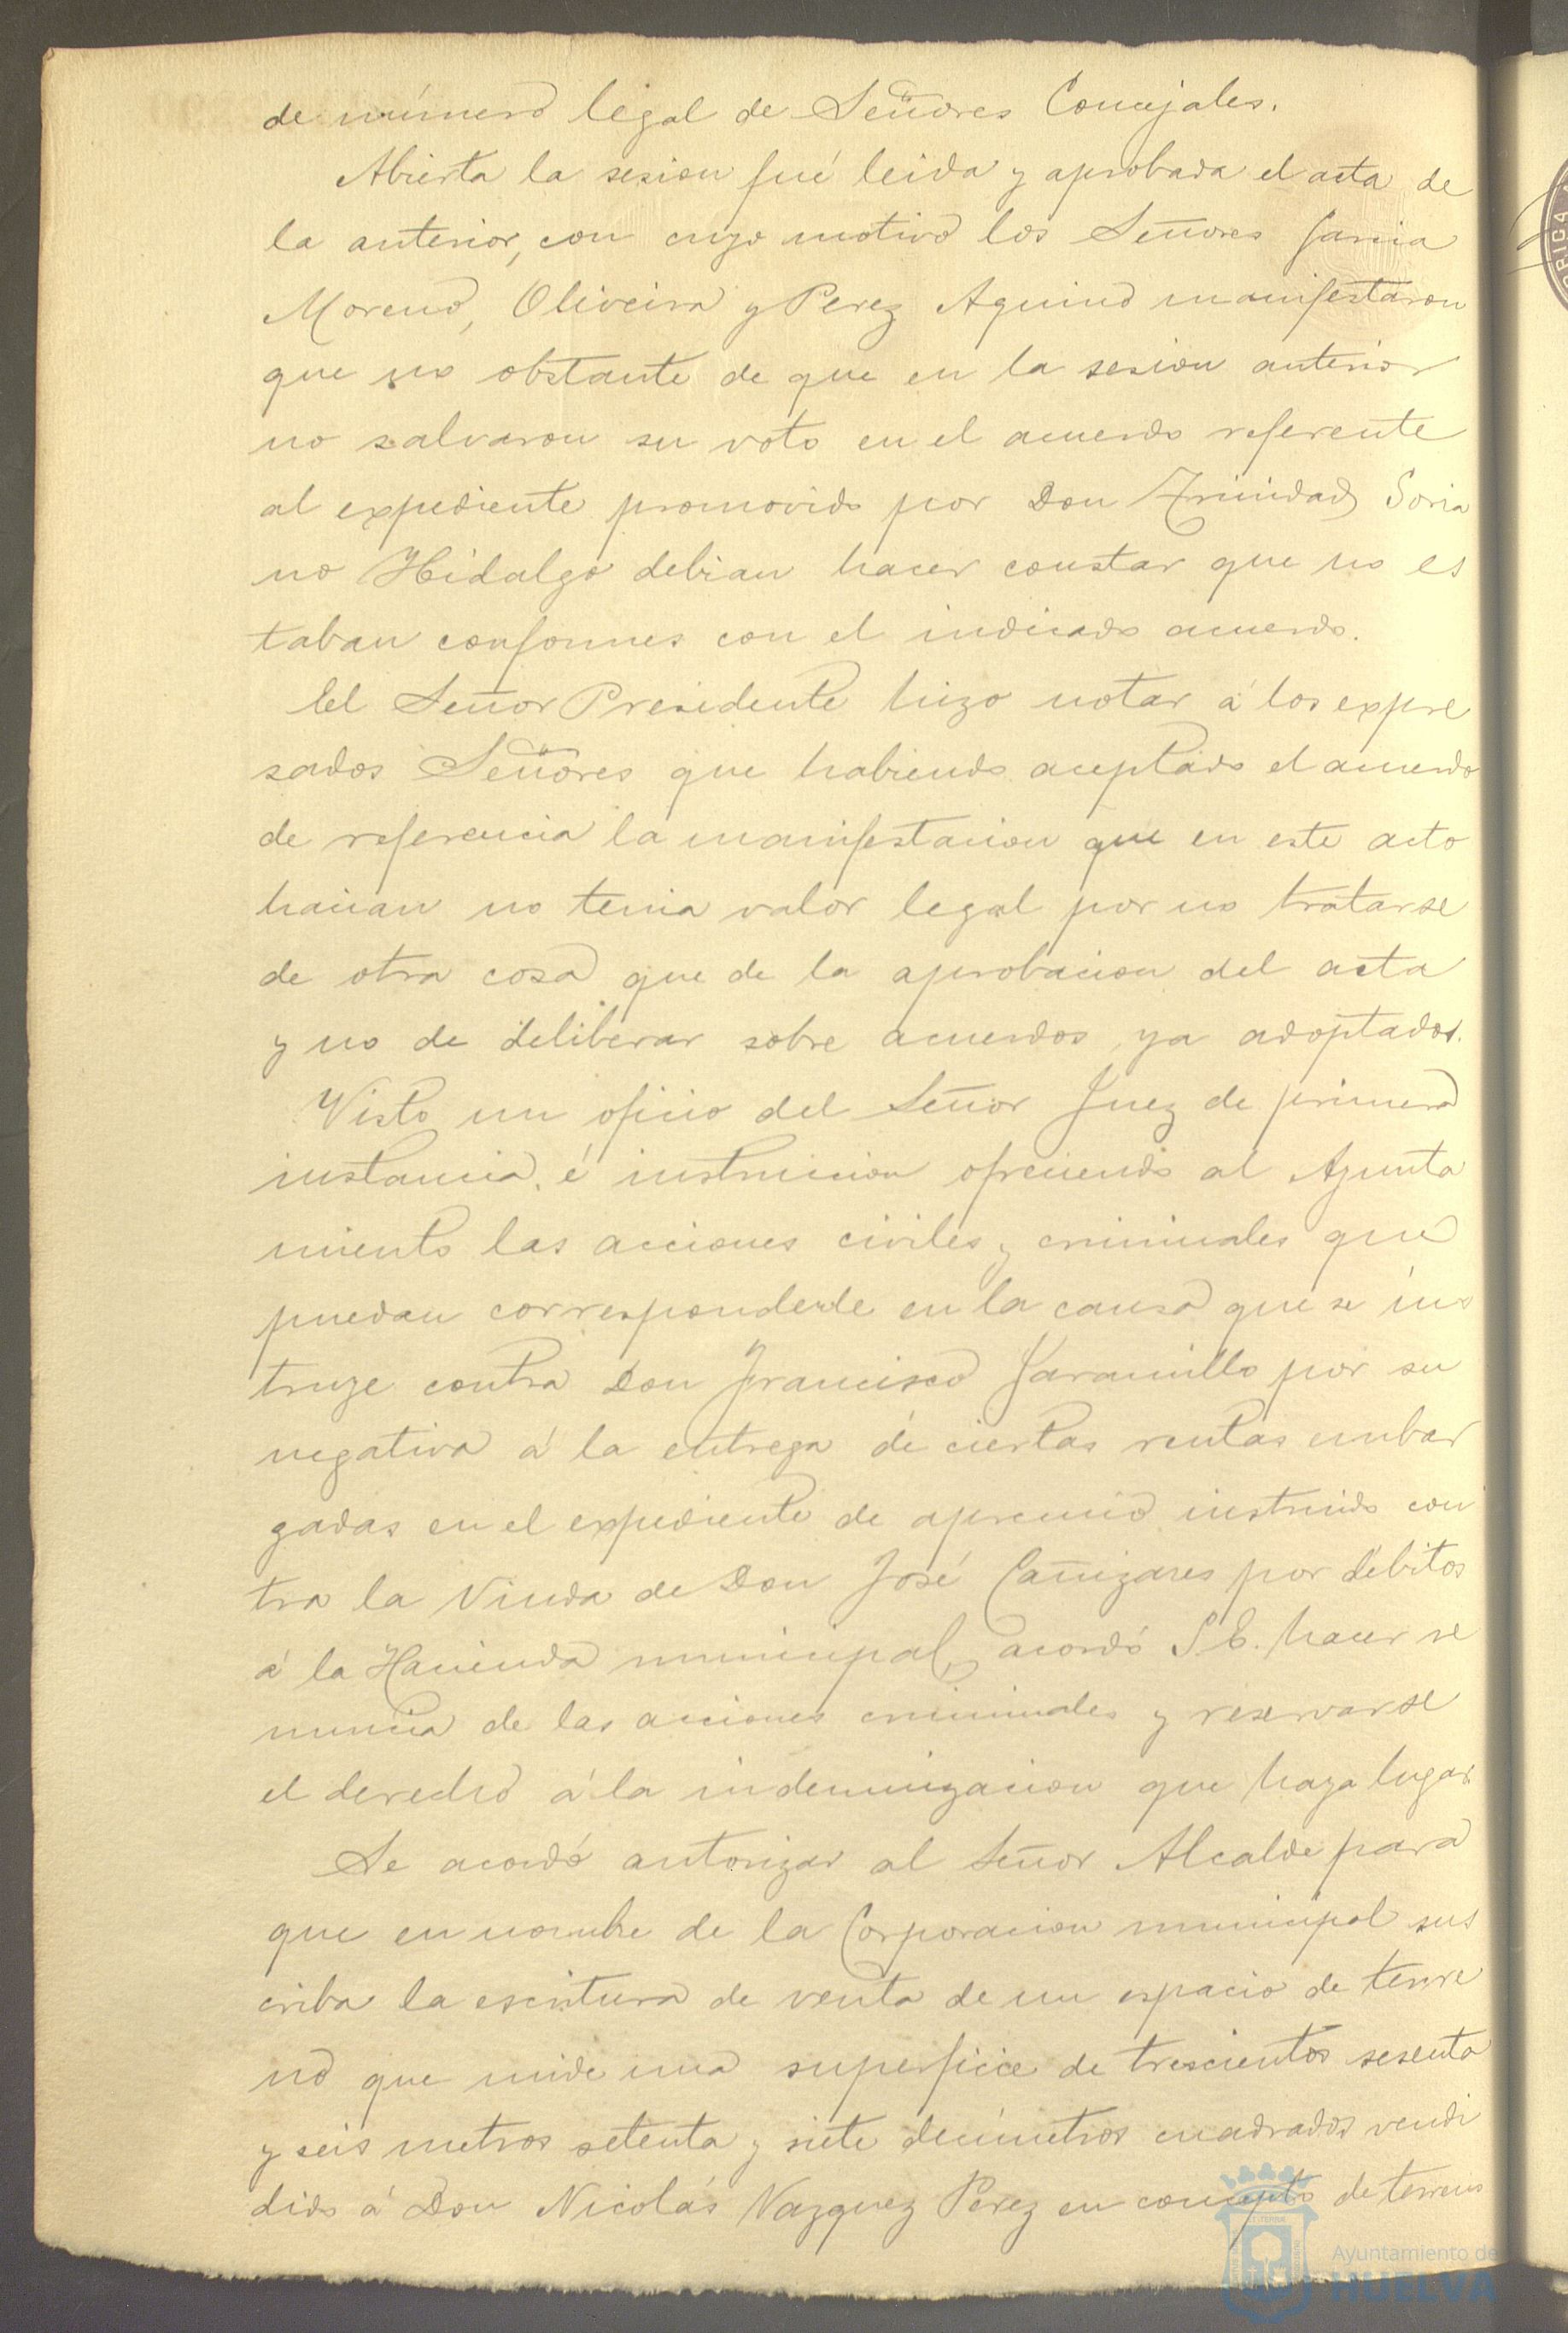 de número legal de Señores Concejales.
Abierta la sesion fué leida y aprobada el acta de
la anterior, con cuyo motivo los Señores Garcia
Moreno, Oliveira y Perez Aquino manifestaron
que no obstante de que en la sesion anterior
no salvaron su voto en el acuerdo referente
al expediente promovido por Don Trinidad Soria
no Hidalgo debian hacer constar que no es
taban conformes con el indicado acuerdo.
El Señor Presidente hizo notar á los expre
sados Señores que habiendo aceptado el acuerdo
de referencia la manifestacion que en este acto
hacian no tenia valor legal por no tratarse
de otra cosa que de la aprobacion del acta
y no de deliberar sobre acuerdos ya adoptados.
Visto un oficio del Señor Juez de primera
instancia é instruccion ofreciendo al Ayunta
miento las acciones civiles y criminales que
puedan corresponderle en la causa que se ins
truye contra Don Francisco Jaramillo por su
negativa á la entrega de ciertas rentas embar
gadas en el expediente de apremio instruido con
tra la Viuda de Don José Cañizares por débitos
á la Hacienda municipal, acordó S.E. hacer re
nuncia de las acciones criminales y reservarse
el derecho á la indemnizacion que haya lugar.
Se acordó autorizar al Señor Alcalde para
que en nombre de la Corporacion municipal sus
criba la escritura de venta de un espacio de terre
no que mide una superficie de trescientos sesenta
y seis metros setenta y siete decimetros cuadrados vendi
dido á Don Nicolás Vazquez Perez en concepto de terreno
Ayuntamiento de
HUELVA